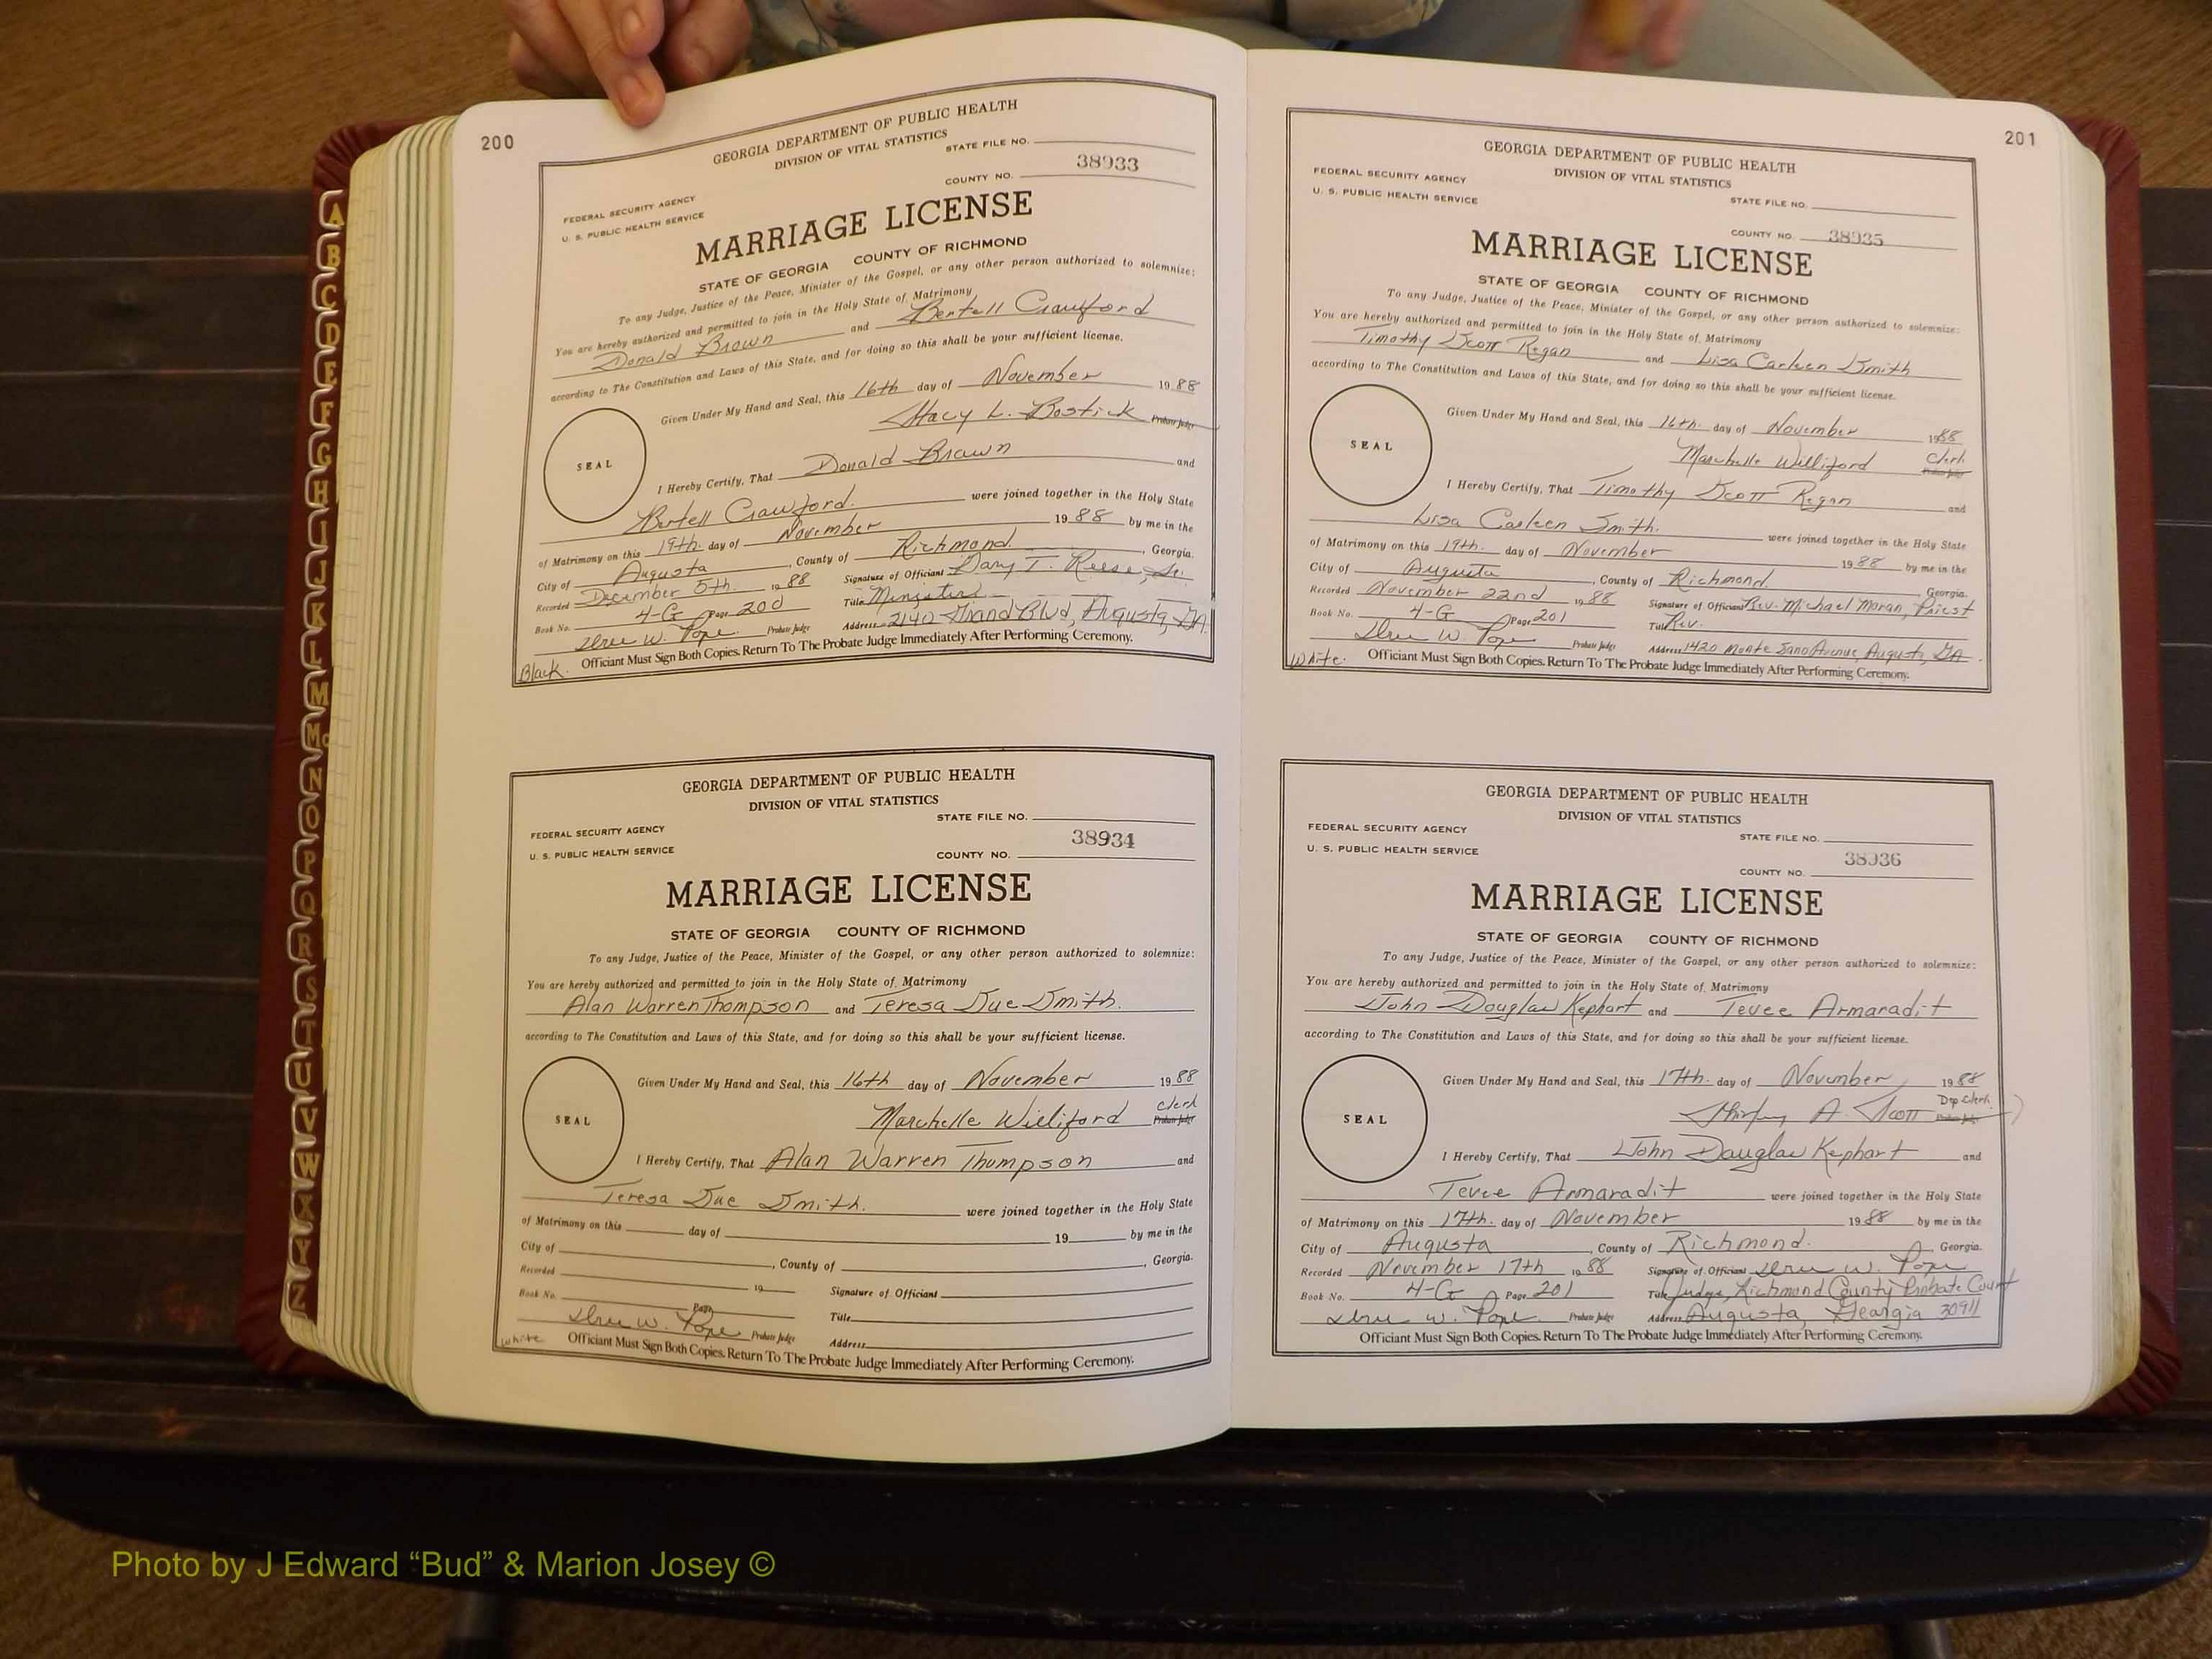 200
GEORGIA DEPARTMENT OF PUBLIC HEALTH
DIVISION OF VITAL STATISTICS
STATE FILE NO.
38933
COUNTY NO.
FEDERAL SECURITY AGENCY
U. S. PUBLIC HEALTH SERVICE
MARRIAGE LICENSE
STATE OF GEORGIA COUNTY OF RICHMOND
To any Judge, Justice of the Peace, Minister of the Gospel, or any other person authorized to solemnize:
You are hereby authorized and permitted to join in the Holy State of Matrimony
Donald Brown and Bertell Crawford
according to The Constitution and Laws of this State, and for doing so this shall be your sufficient license.
Given Under My Hand and Seal, this 16th day of November 1988
Stacy L. Bostick Probate Judge
SEAL
I Hereby Certify, That Donald Brown and
Bertell Crawford. were joined together in the Holy State
of Matrimony on this 19th. day of November 1988 by me in the
City of Augusta, County of Richmond., Georgia.
Recorded December 5th. 1988 Signature of Officiant Dany T. Reese, Sr.
Book No. 4-G Page 200 Title
W. Pope. Probate Judge Address 2140 Grand Blvd, Augusta, GA.
Black. Officiant Must Sign Both Copies. Return To The Probate Judge Immediately After Performing Ceremony.
GEORGIA DEPARTMENT OF PUBLIC HEALTH
DIVISION OF VITAL STATISTICS
STATE FILE NO.
38934
COUNTY NO.
FEDERAL SECURITY AGENCY
U. S. PUBLIC HEALTH SERVICE
MARRIAGE LICENSE
STATE OF GEORGIA COUNTY OF RICHMOND
To any Judge, Justice of the Peace, Minister of the Gospel, or any other person authorized to solemnize:
You are hereby authorized and permitted to join in the Holy State of Matrimony
Alan Warren Thompson and Teresa Sue Smith.
according to The Constitution and Laws of this State, and for doing so this shall be your sufficient license.
Given Under My Hand and Seal, this 16th day of November 1988
Marchelle Williford Clerk Probate Judge
SEAL
I Hereby Certify, That Alan Warren Thompson and
Teresa Sue Smith. were joined together in the Holy State
of Matrimony on this day of 19 by me in the
City of , County of , Georgia.
Recorded 19 Signature of Officiant
Book No. Page Title
W. Pope Probate Judge Address
White Officiant Must Sign Both Copies. Return To The Probate Judge Immediately After Performing Ceremony.
201
GEORGIA DEPARTMENT OF PUBLIC HEALTH
DIVISION OF VITAL STATISTICS
FEDERAL SECURITY AGENCY
U. S. PUBLIC HEALTH SERVICE
STATE FILE NO.
COUNTY NO. 38935
MARRIAGE LICENSE
STATE OF GEORGIA COUNTY OF RICHMOND
To any Judge, Justice of the Peace, Minister of the Gospel, or any other person authorized to solemnize:
You are hereby authorized and permitted to join in the Holy State of Matrimony
Timothy Scott Regan and Lisa Carleen Smith
according to The Constitution and Laws of this State, and for doing so this shall be your sufficient license.
Given Under My Hand and Seal, this 16th. day of November 1988
Marchelle Williford Clerk Probate Judge
SEAL
I Hereby Certify, That Timothy Scott Regan and
Lisa Carleen Smith. were joined together in the Holy State
of Matrimony on this 19th. day of November 1988 by me in the
City of Augusta, County of Richmond, Georgia.
Recorded November 22nd 1988 Signature of Officiant Rev. Michael Moran, Priest
Book No. 4-G Page 201 Title Rev.
W. Pope Probate Judge Address 1420 Monte Sano Avenue, Augusta, GA.
White. Officiant Must Sign Both Copies. Return To The Probate Judge Immediately After Performing Ceremony.
GEORGIA DEPARTMENT OF PUBLIC HEALTH
DIVISION OF VITAL STATISTICS
FEDERAL SECURITY AGENCY
U. S. PUBLIC HEALTH SERVICE
STATE FILE NO.
38936
COUNTY NO.
MARRIAGE LICENSE
STATE OF GEORGIA COUNTY OF RICHMOND
To any Judge, Justice of the Peace, Minister of the Gospel, or any other person authorized to solemnize:
You are hereby authorized and permitted to join in the Holy State of Matrimony
John Douglas Kephart and Tevee Armaradit
according to The Constitution and Laws of this State, and for doing so this shall be your sufficient license.
Given Under My Hand and Seal, this 17th. day of November, 1988
Shirley A. Scott Dep Clerk. Probate Judge
SEAL
I Hereby Certify, That John Douglas Kephart and
Tevee Armaradit were joined together in the Holy State
of Matrimony on this 17th. day of November 1988 by me in the
City of Augusta, County of Richmond., Georgia.
Recorded November 17th 1988 Signature of Officiant W. Pope
Book No. 4-G Page 201 Title Judge, Richmond County Probate Court
W. Pope. Probate Judge Address Augusta, Georgia 30911
Officiant Must Sign Both Copies. Return To The Probate Judge Immediately After Performing Ceremony.
A
B
C
D
E
F
G
H
I
J
K
L
M
Mc
N
O
P
Q
R
S
T
U
V
W
X
Y
Z
Photo by J Edward “Bud” & Marion Josey ©